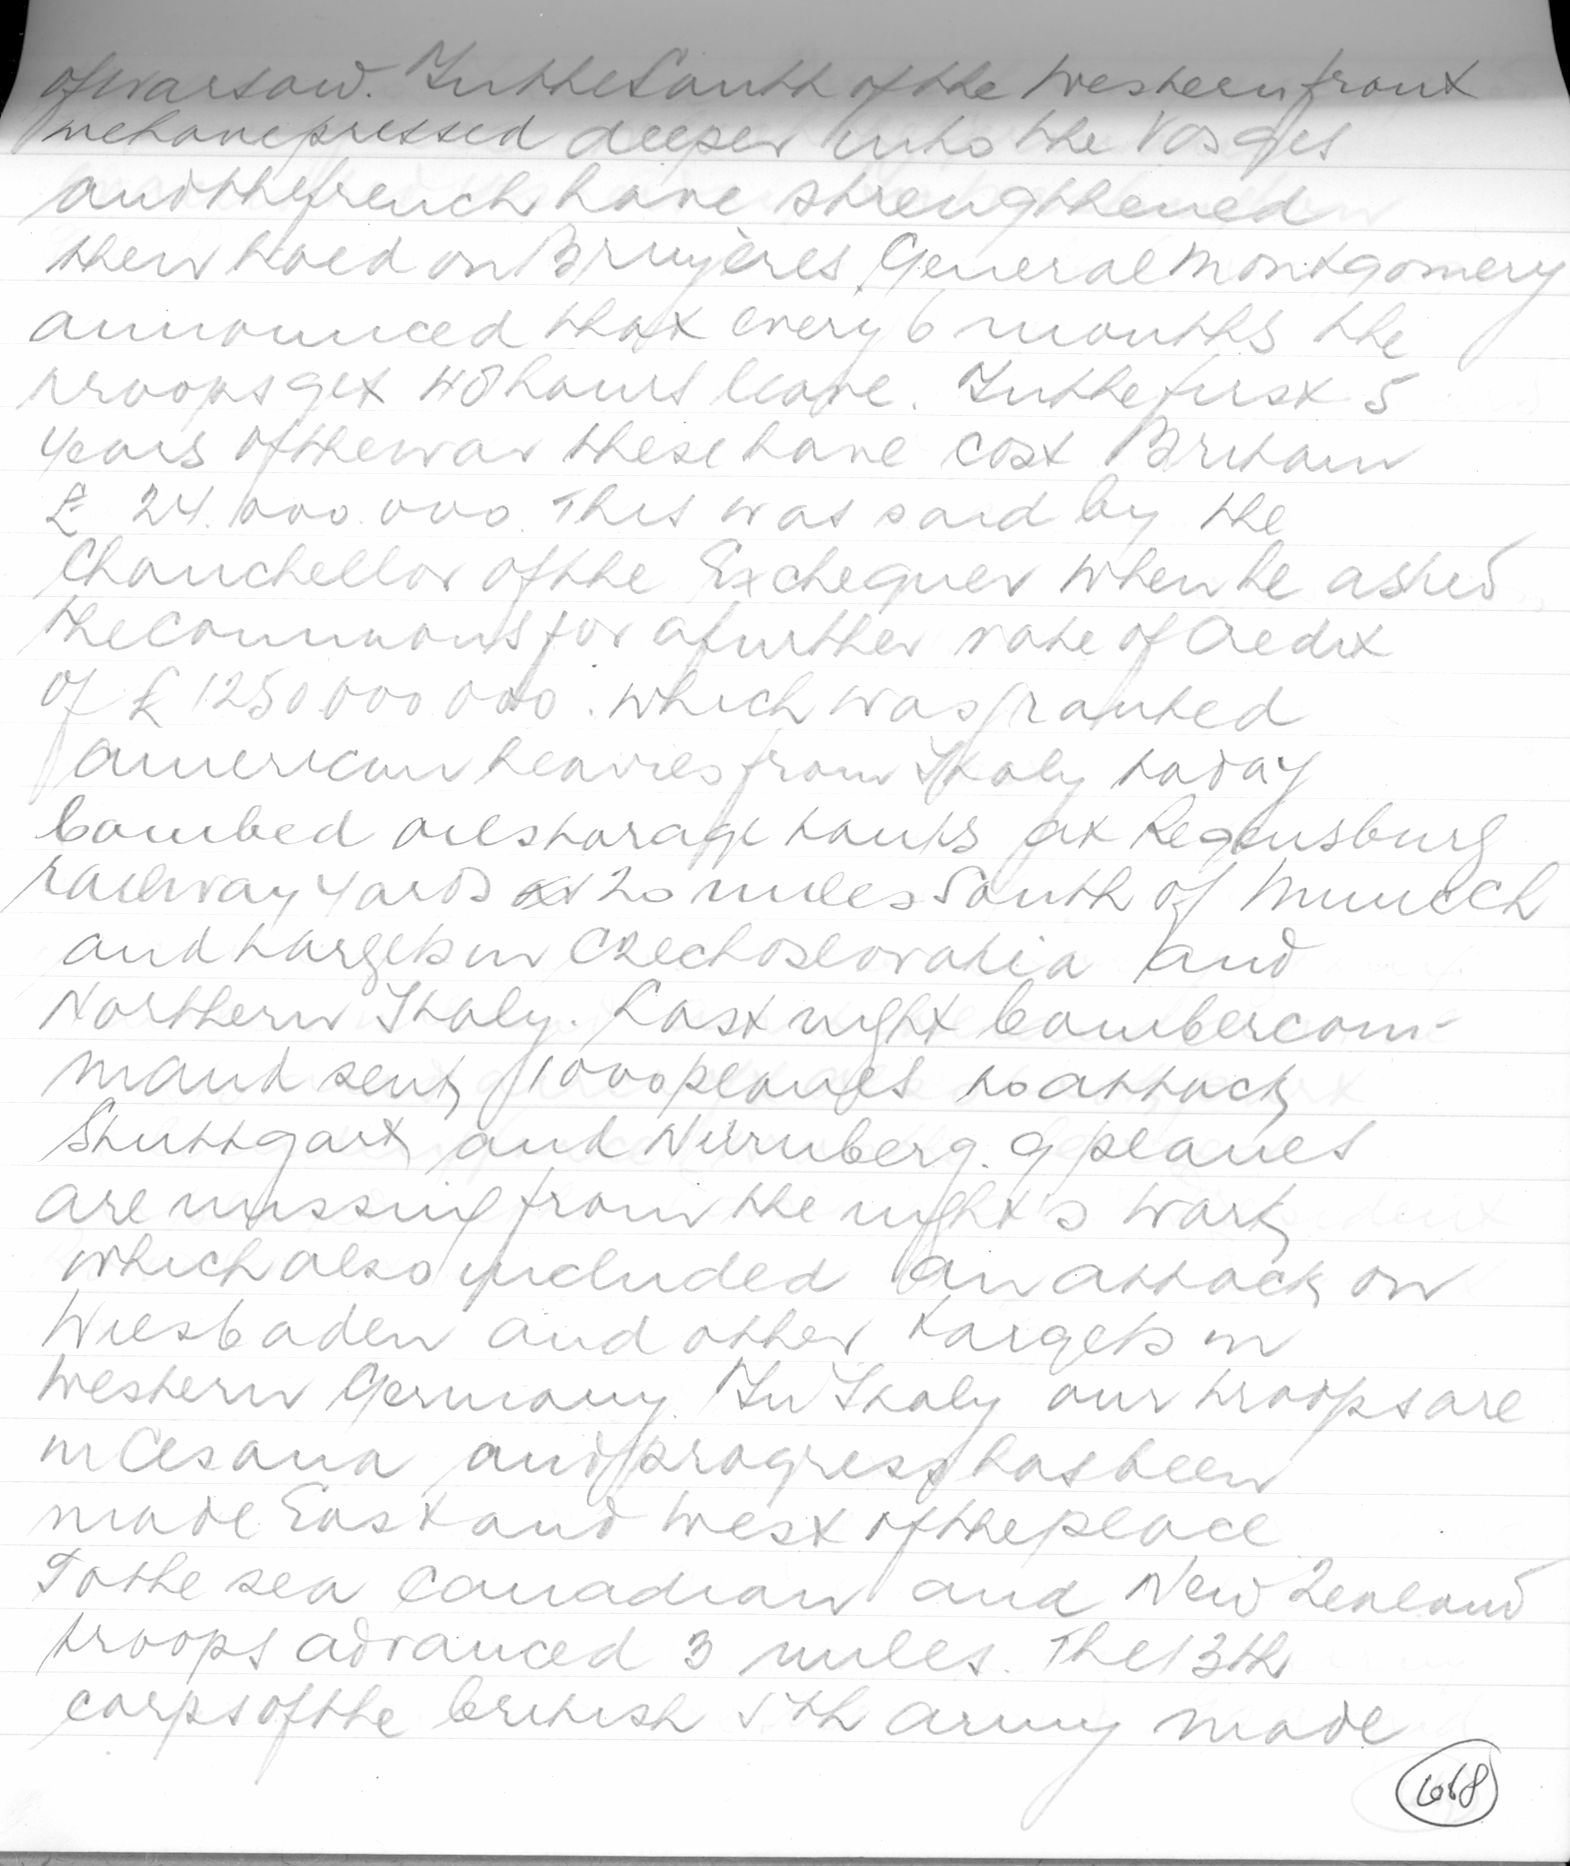 of Warsaw. In the South of the Western front
we have pressed deeper into the Vosges
and the french have strengthened
their hold on Bruyères. General Montgomery
announced that every 6 months the
troops get 48 hours leave. In the first 5
years of the war these have cost Britain
£ 24.000.000. This was said by the
Chanchellor of the Exchequer when he asked
the Commons for a further vote of Credit
of £ 1250.000.000. which was granted
American heavies from Italy today
bombed oil storage tanks at Regensburg
railway yards 20 miles South of Munich
and targets in Czechoslovakia and
Northern Italy. Last night bombercom-
mand sent 1000 planes to attack
Stuttgart and Nürnberg. 9 planes
are missing from the night's work,
which also included an attack on
Wiesbaden and other targets in
Western Germany. In Italy our troops are
in Cesana and progress has been
made East and West of the place
To the sea Canadian and New Zealand
troops advanced 3 miles. The 13th
corps of the british 5th army made